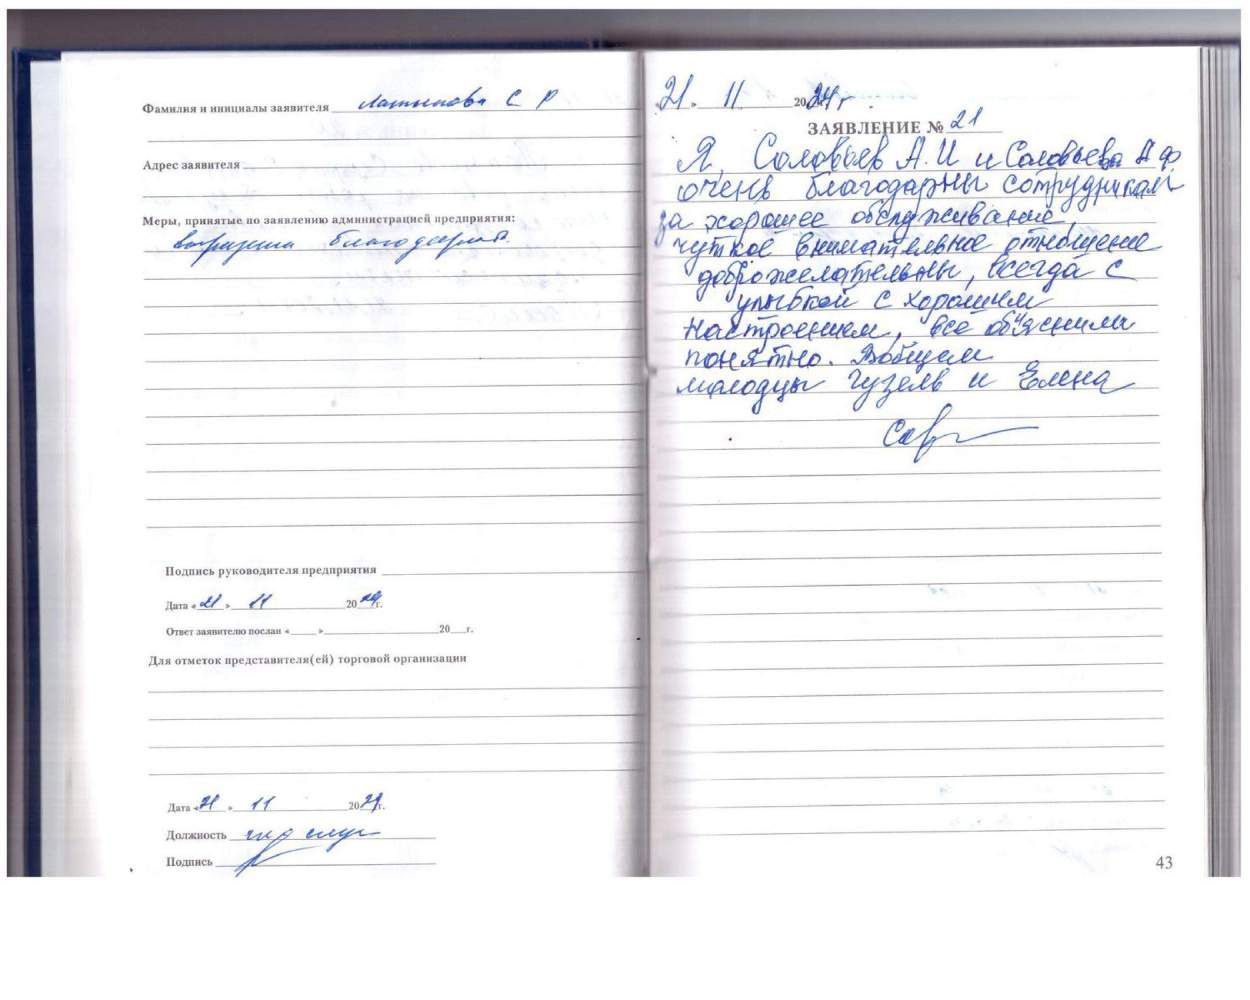 Фамилия и инициалы заявителя Латыпова С Р
Адрес заявителя
Меры, принятые по заявлению администрацией предприятия:
благодарность
Подпись руководителя предприятия
Дата «21» 11 2024г.
Ответ заявителю послан « » 20 г.
Для отметок представителя(ей) торговой организации
Дата «21» 11 2024г.
Должность
Подпись
21 » 11 2024 г.
ЗАЯВЛЕНИЕ № 21
Я, Соловьев А.И и Соловьева А.Ф.
очень благодарны сотрудникам
за хорошее обслуживание,
чуткое внимательное отношение
доброжелательны, всегда с
улыбкой с хорошим
настроением, все объяснили
понятно. Вобщем
молодцы Гузель и Елена
43